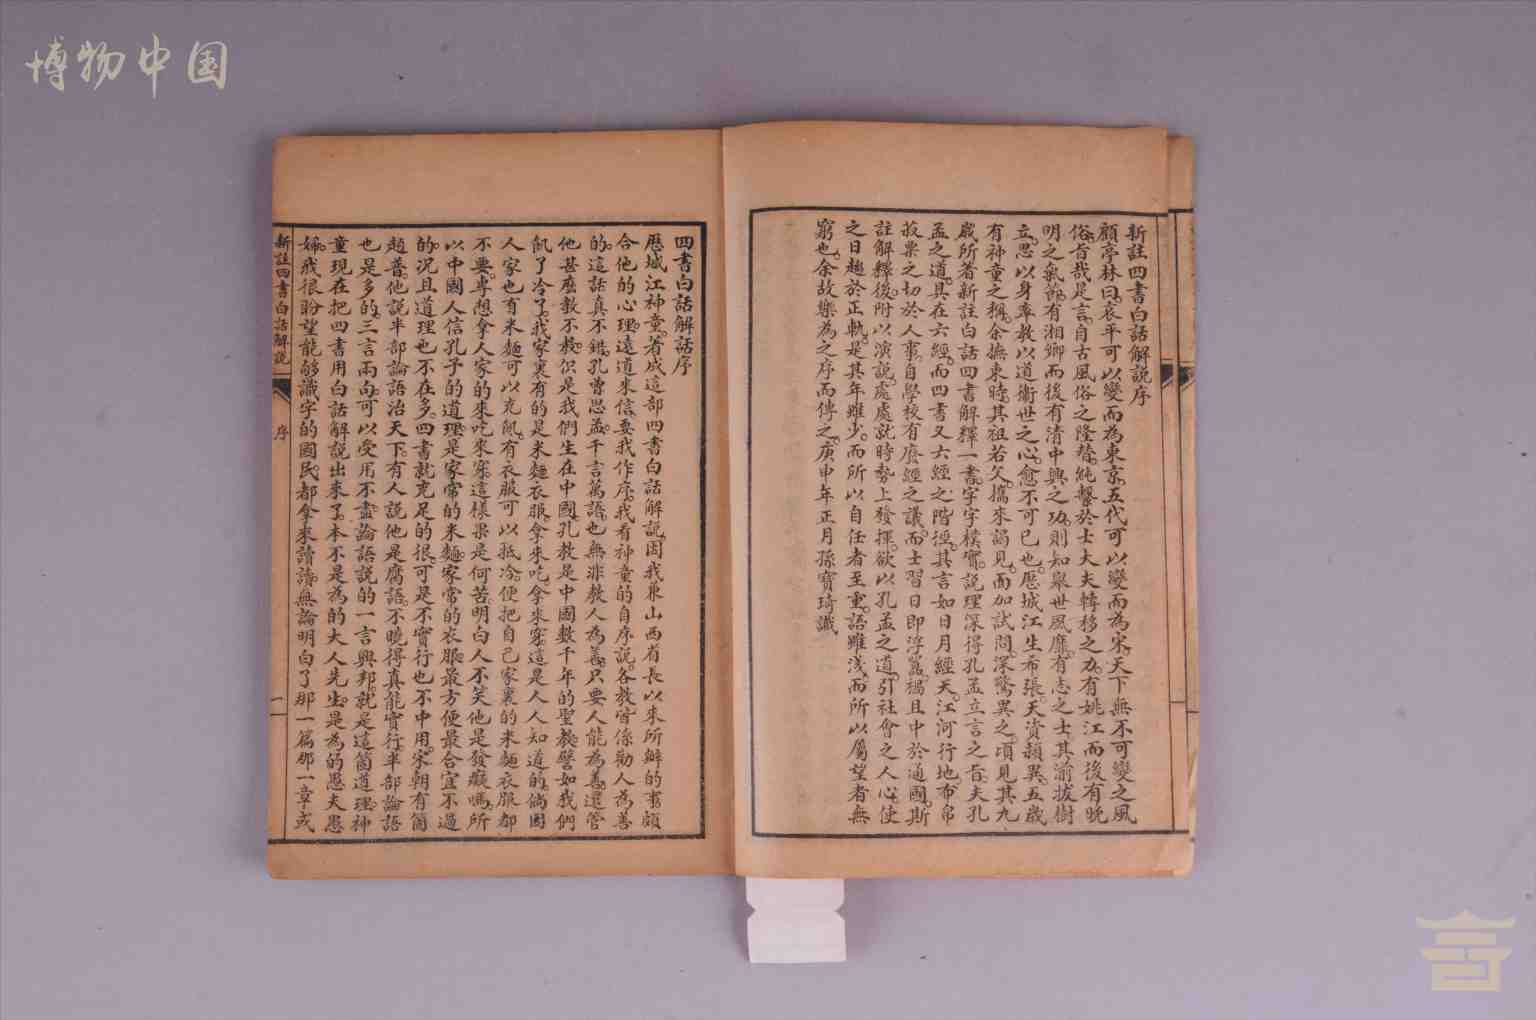 博物中国
新註四書白話解說序
顧亭林曰哀平可以變而為東京五代可以變而為宋天下無不可變之風
俗旨哉是言自古風俗之隆替純繫於士大夫轉移之力有姚江而後有晚
明之氣節有湘鄉而後有清中興之功則知舉世風靡有志之士其渝拔樹
立思以身率教以道衞世之心愈不可已也歷城江生希張天資穎異五歲
有神童之稱余撫東時其祖若父攜來謁見而加試問深驚異之頃見其九
歲所著新註白話四書解釋一書字字樸實說理深得孔孟立言之旨夫孔
孟之道具在六經而四書又六經之階徑其言如日月經天江河行地布帛
菽粟之切於人事自學校有廢經之議而士習日即浮囂禍且中於通國斯
註解釋後附以演說處處就時勢上發揮欲以孔孟之道引社會之人心使
之日趨於正軌是其年雖少而所以自任者至重語雖淺而所以屬望者無
窮也余故樂為之序而傳之庚申年正月孫寶琦識
四書白話解話序
歷城江神童著成這部四書白話解說因我兼山西省長以來所辦的事頗
合他的心理遠道來信要我作序我看神童的自序說各教皆係勸人為善
的這話真不錯孔曾思孟千言萬語也無非教人為善只要人能為善還管
他甚麼教不教但是我們生在中國孔教是中國數千年的聖教譬如我們
飢了冷了我家裏有的是米麵衣服拿來吃拿來穿這是人人知道的倘因
人家也有米麵可以充飢有衣服可以抵冷便把自己家裏的米麵衣服都
不要專想拿人家的來吃來穿這樣果是何苦明白人不笑他是發癡嗎所
以中國人信孔子的道理是家常的米麵家常的衣服最方便最合宜不過
的況且道理也不在多四書就充足的很可是不實行也不中用宋朝有箇
趙普他說半部論語治天下有人說他是腐語不曉得真能實行半部論語
也是多的三言兩句可以受用不盡論語說的一言興邦就是這箇道理神
童現在把四書用白話解說出來了本不是為的大人先生是為的愚夫愚
婦我很盼望能够識字的國民都拿來讀讀無論明白了那一篇那一章或
新註四書白話解說
序
一